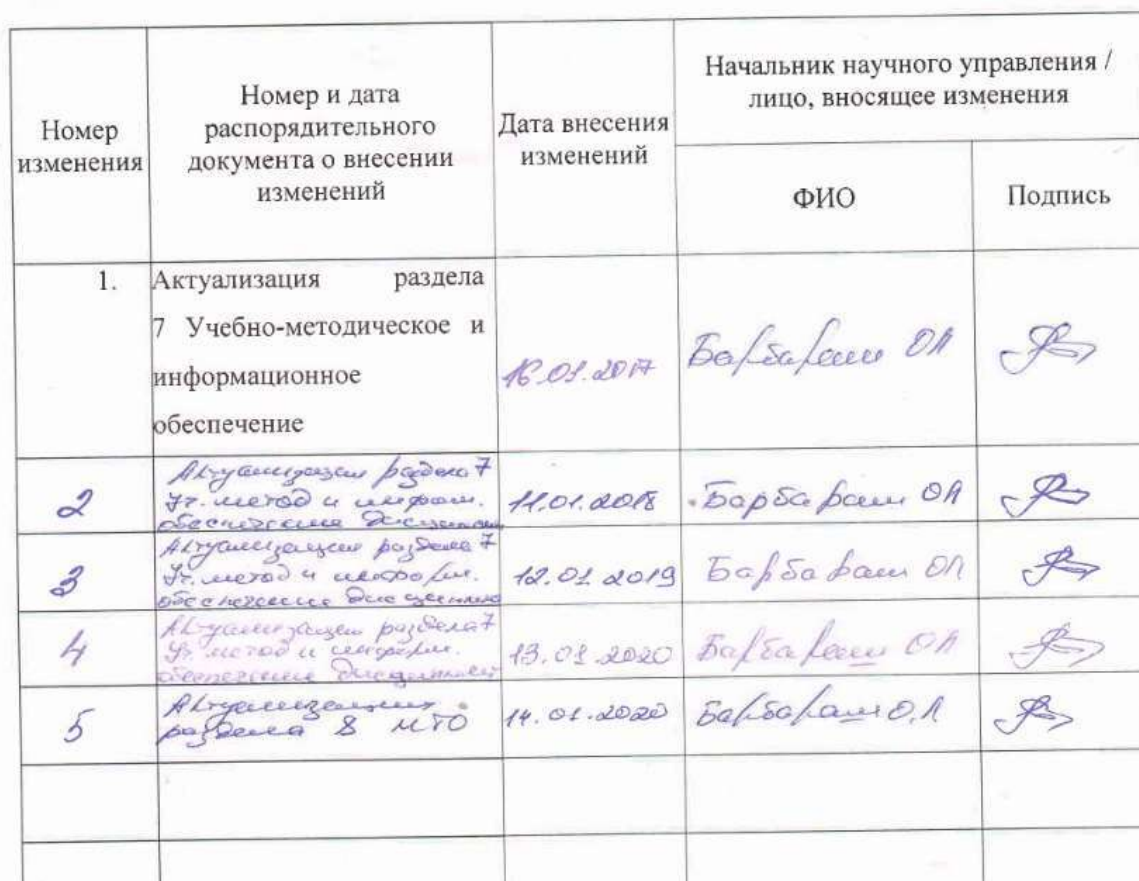 Номер изменения
Номер и дата
распорядительного
документа о внесении
изменений
Дата внесения
изменений
Начальник научного управления /
лицо, вносящее изменения
ФИО
Подпись
1.
Актуализация раздела
7 Учебно-методическое и
информационное
обеспечение
16.01.2017
Барбараш ОЛ
2
Актуализация раздела 7
Уч. метод и информ.
обеспечение дисциплин
11.01.2018
Барбараш ОЛ
3
Актуализация раздела 7
Уч. метод и информ.
обеспечение дисциплин
12.01.2019
Барбараш ОЛ
4
Актуализация раздела 7
Уч. метод и информ.
обеспечение дисциплин
13.01.2020
Барбараш ОЛ
5
Актуализация
раздела 8 МТО
14.01.2020
Барбараш О.Л